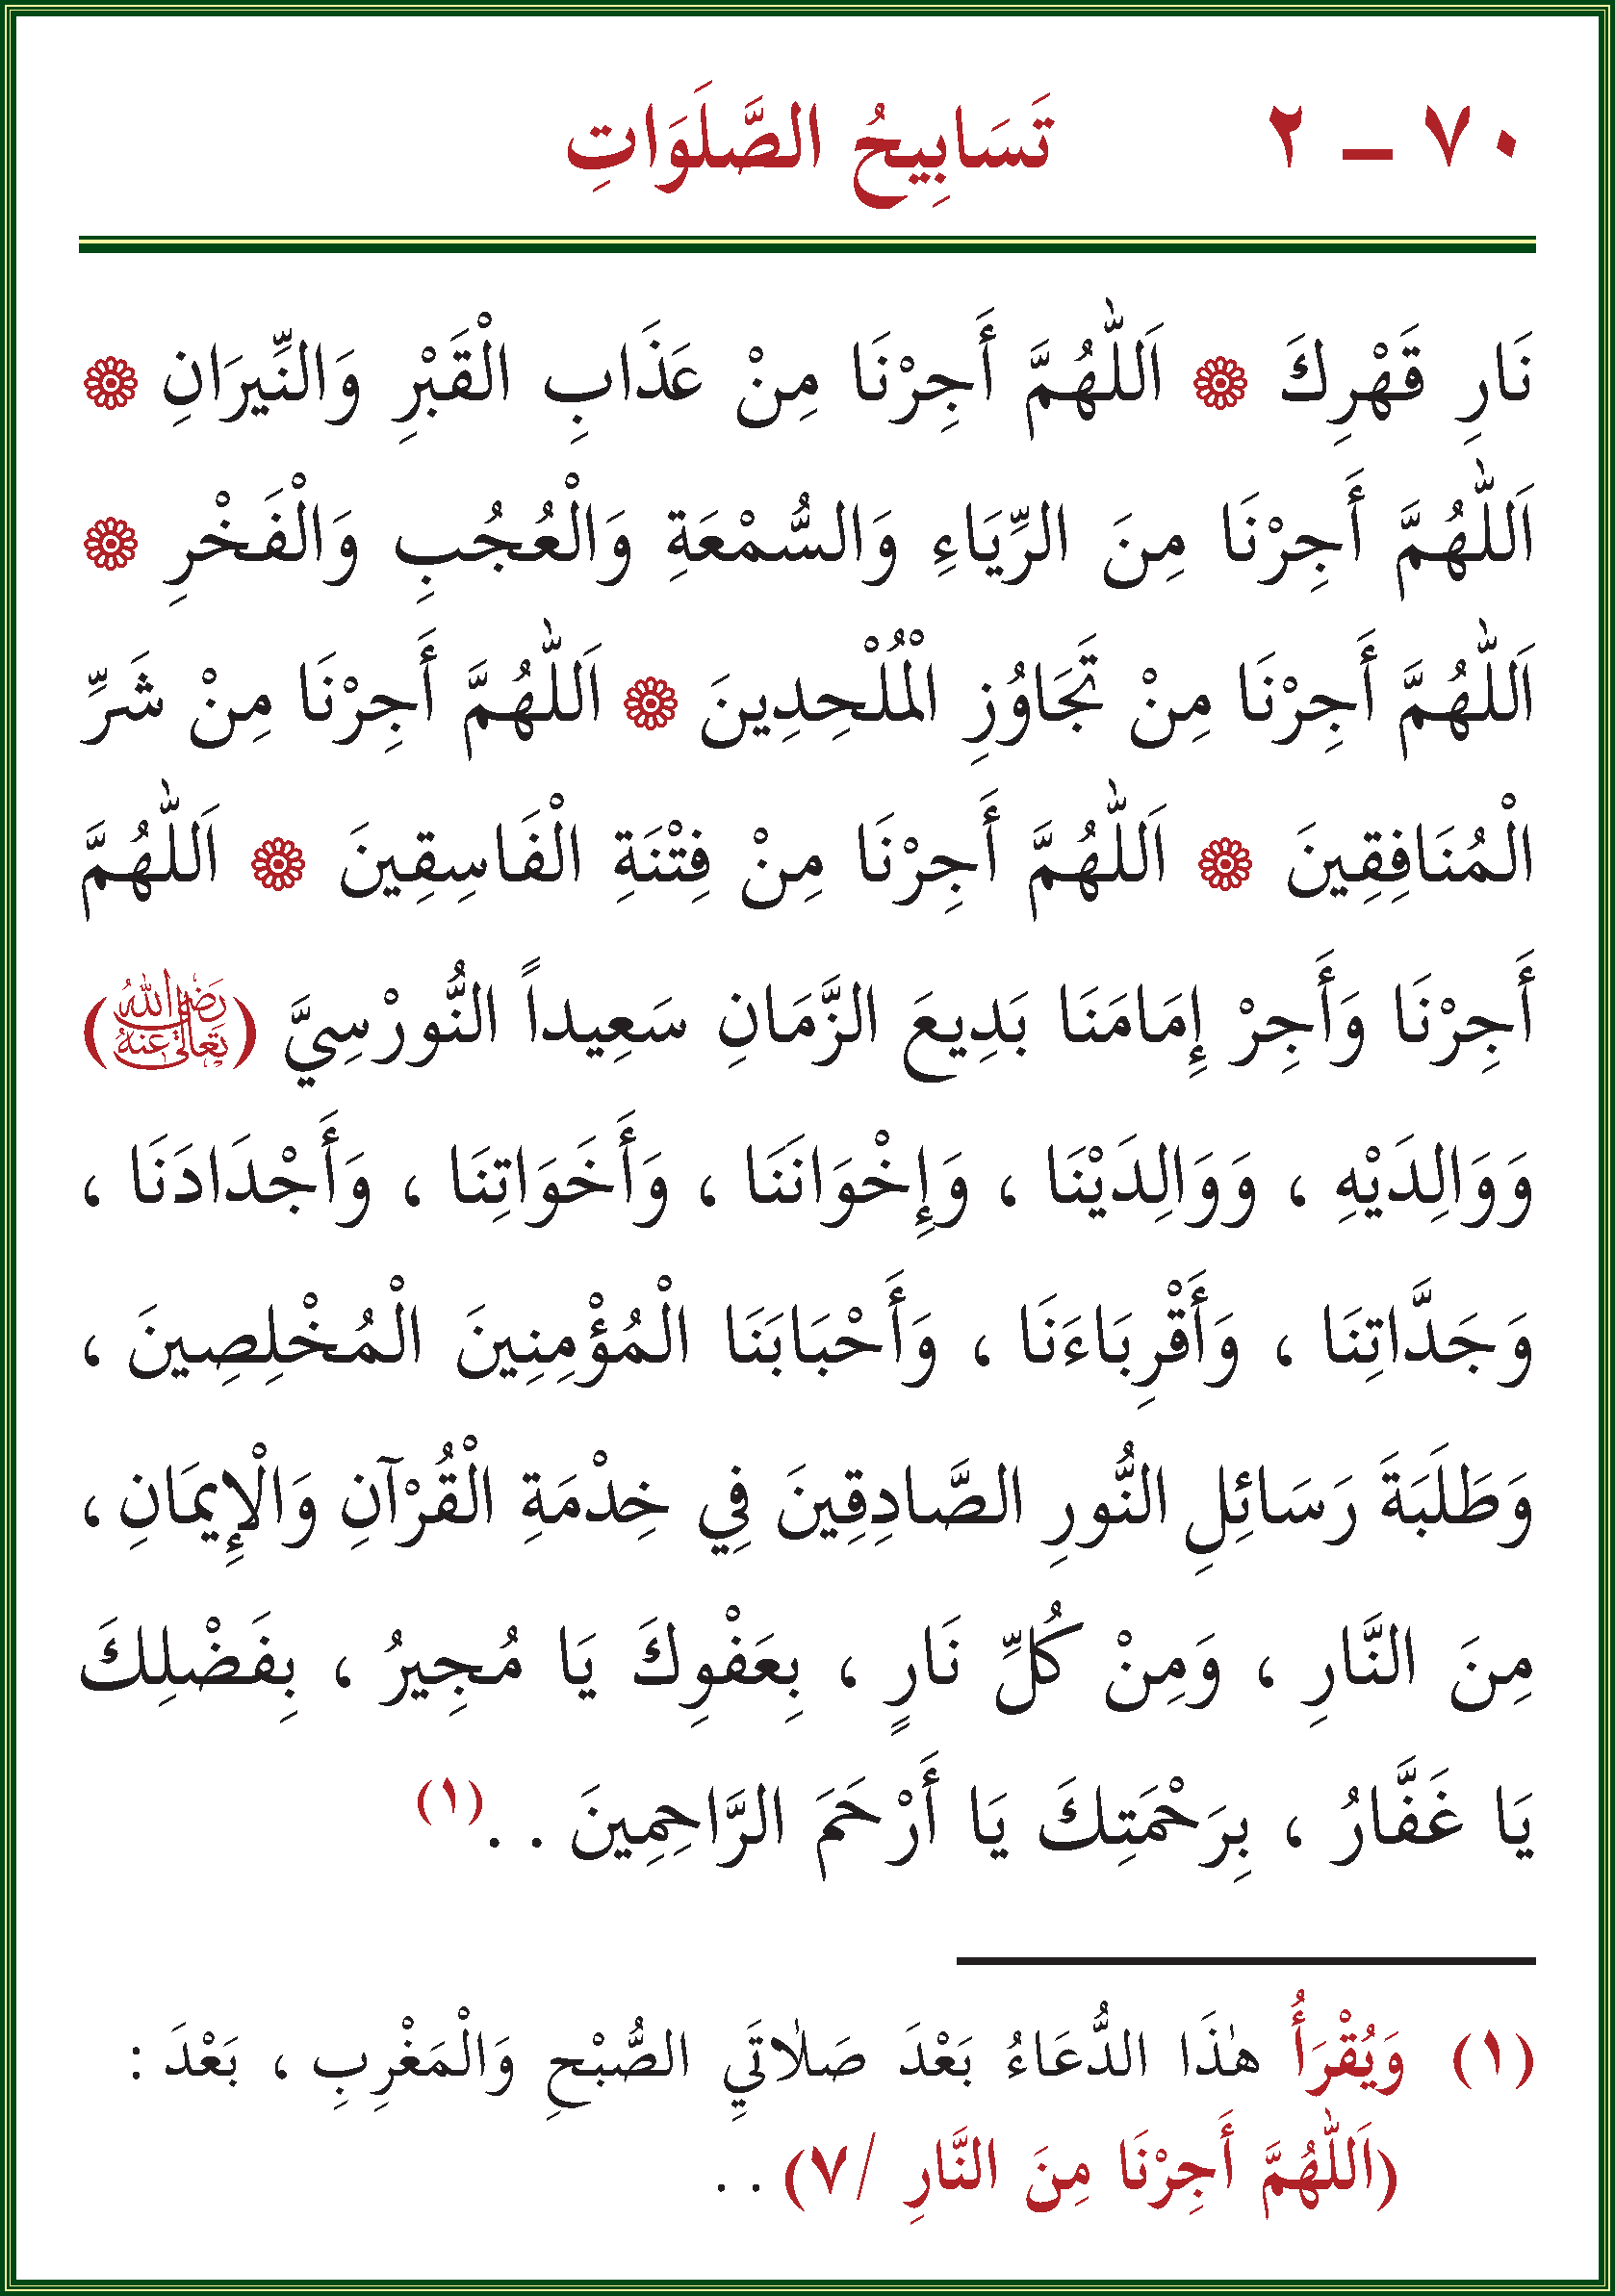 ٧٠ – ٢ تَسَابِيحُ الصَّلَوَاتِ
نَارِ قَهْرِكَ ۞ اَللّٰهُمَّ أَجِرْنَا مِنْ عَذَابِ الْقَبْرِ وَالنِّيرَانِ ۞
اَللّٰهُمَّ أَجِرْنَا مِنَ الرِّيَاءِ وَالسُّمْعَةِ وَالْعُجُبِ وَالْفَخْرِ ۞
اَللّٰهُمَّ أَجِرْنَا مِنْ تَجَاوُزِ الْمُلْحِدِينَ ۞ اَللّٰهُمَّ أَجِرْنَا مِنْ شَرِّ
الْمُنَافِقِينَ ۞ اَللّٰهُمَّ أَجِرْنَا مِنْ فِتْنَةِ الْفَاسِقِينَ ۞ اَللّٰهُمَّ
أَجِرْنَا وَأَجِرْ إِمَامَنَا بَدِيعَ الزَّمَانِ سَعِيداً النُّورْسِيَّ (رَضِيَ اللّٰهُ تَعَالٰى عَنْهُ)
وَوَالِدَيْهِ ، وَوَالِدَيْنَا ، وَإِخْوَانَنَا ، وَأَخَوَاتِنَا ، وَأَجْدَادَنَا ،
وَجَدَّاتِنَا ، وَأَقْرِبَاءَنَا ، وَأَحْبَابَنَا الْمُؤْمِنِينَ الْمُخْلِصِينَ ،
وَطَلَبَةَ رَسَائِلِ النُّورِ الصَّادِقِينَ فِي خِدْمَةِ الْقُرْآنِ وَالْإِيمَانِ ،
مِنَ النَّارِ ، وَمِنْ كُلِّ نَارٍ ، بِعَفْوِكَ يَا مُجِيرُ ، بِفَضْلِكَ
يَا غَفَّارُ ، بِرَحْمَتِكَ يَا أَرْحَمَ الرَّاحِمِينَ . .(١)
(١) وَيُقْرَأُ هٰذَا الدُّعَاءُ بَعْدَ صَلَاتَيِ الصُّبْحِ وَالْمَغْرِبِ ، بَعْدَ :
(اَللّٰهُمَّ أَجِرْنَا مِنَ النَّارِ /٧) . .